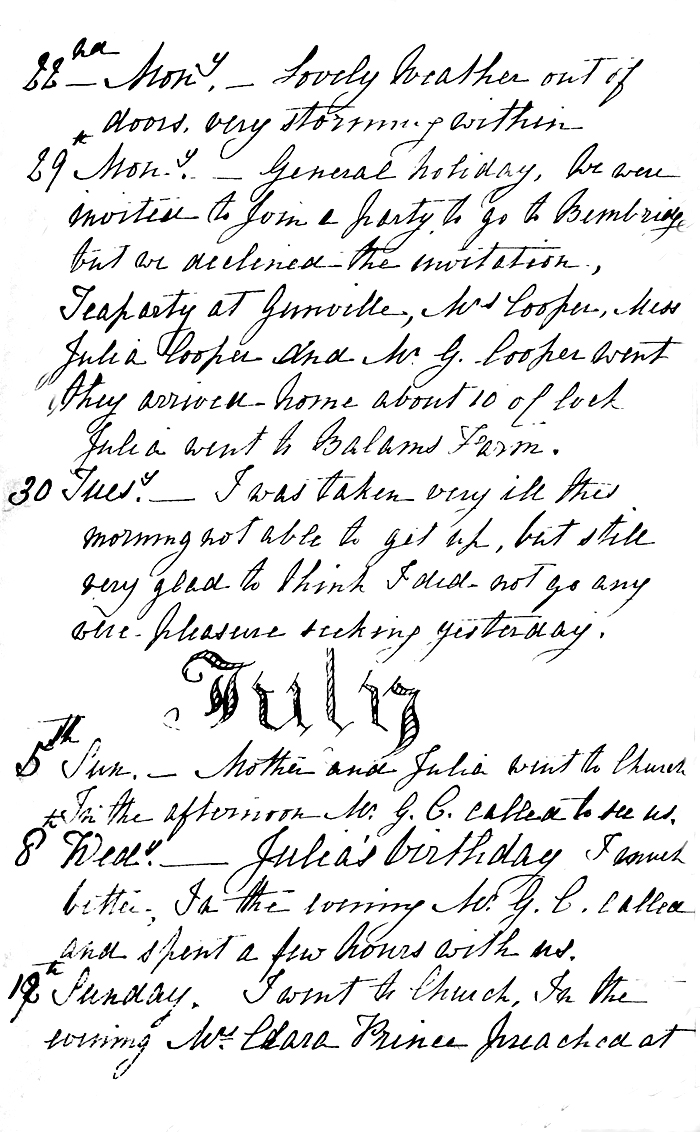 22nd — Mony. — Lovely Weather out of
doors, very storming within
29th Mony. — General holiday, We were
invited to join a party to go to Bembridge
but we declined the invitation,
Teaparty at Gunville, Mrs Cooper, Miss
Julia Cooper And Mr. G. Cooper went
they arrived home about 10 of lock
Julia went to Balams Farm.
30 Tuesy. — I was taken very ill this
morning not able to get up, but still
very glad to think I did not go any
were pleasure seeking yesterday.
July
5th Sun. — Mother and Julia went to Church
In the afternoon Mr. G. C. called to see us.
8th Wedy. — Julia's birthday I much
better, In the evening Mr. G. C. called
and spent a few hours with us.
12th Sunday. I went to Church, In the
evening Mrs Clara Prince preached at